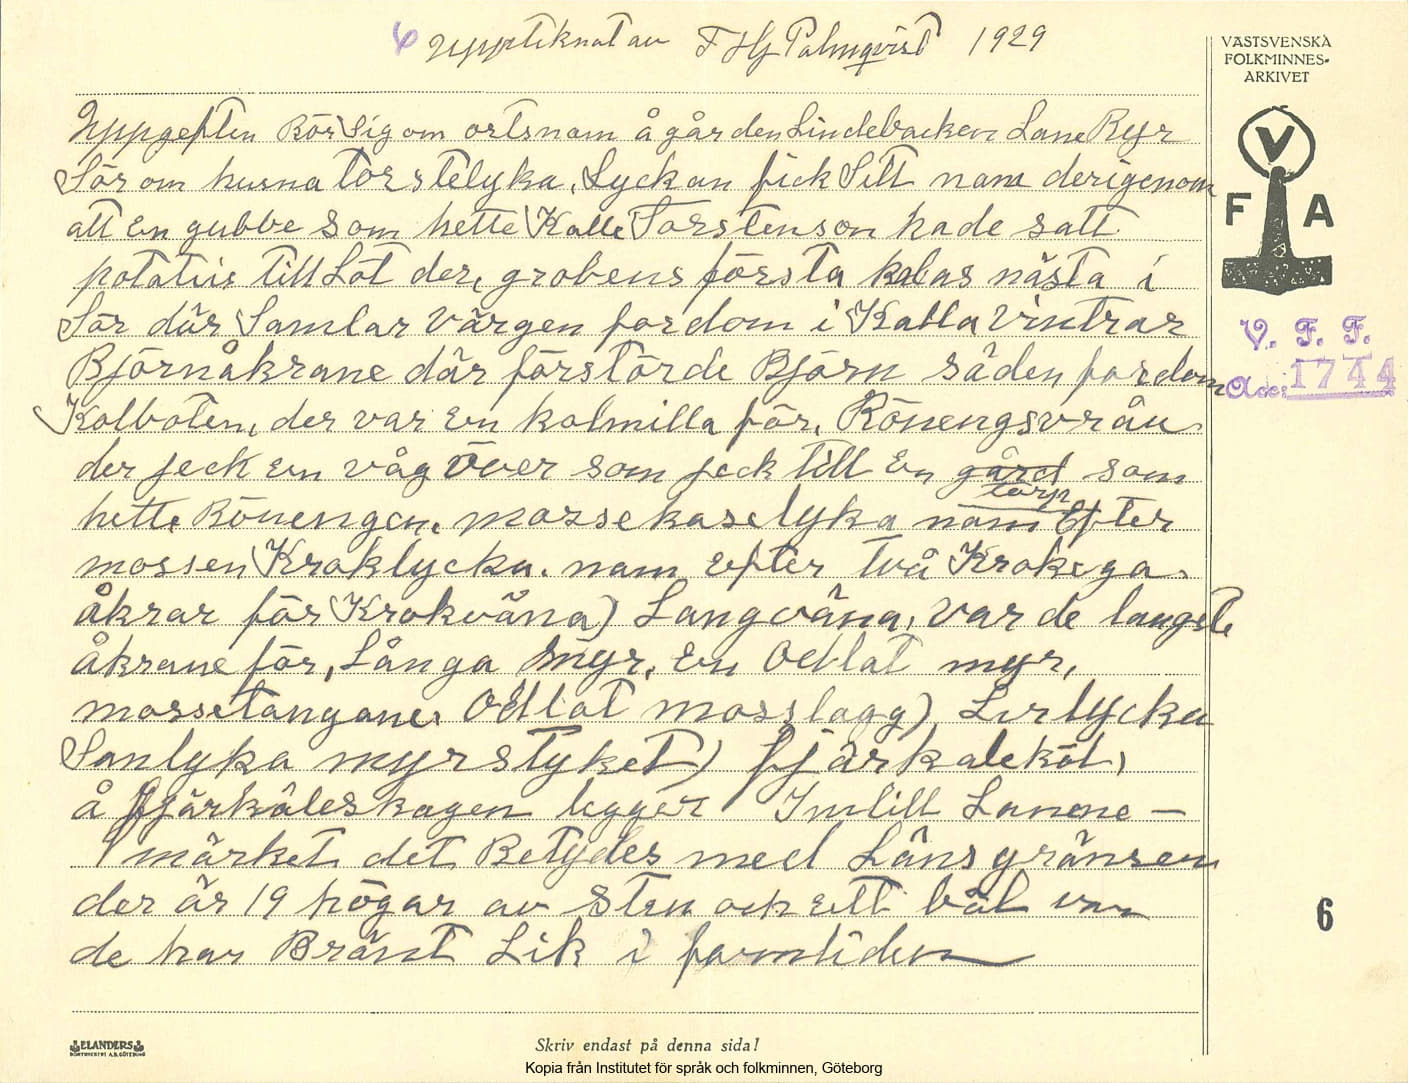 6 Upptiknat av F Hj Palmqvist 1929
VÄSTSVENSKA
FOLKMINNES-
ARKIVET
V
F A
V. F. F.
Acc: 1744
6
Uppgeften Rör Sig om ortsnam å gården Lindebacken Lane Ryr
Sör om husna Torstelyka, Lyckan fick Sitt nam derigenom
att En gubbe som hette Kalle Torstenson hade satt
potatüs till Lot der, grobens första kulas nästa i
Sör där Samlar värgen fordom i Kalla Vintrar
Björnåkrane där förstörde Björn säden fordom
Kolboten, der var En kolmilla för, Rönengsvrån
der jeck En våg över som jeck till En gård som
torp
hette Rönengen, mossekaselyka nam Efter
mossen Kroklycka. nam Efter två Krokega
åkrar för Krokväna) Langväna, var de langste
åkrane för, Långa myr. En Odlat myr,
mossetangane, Odlat mosslagg) Lerlycka
Sanlyka myrstyket) fjärkaleköt,
å fjärkåleskogen legger Intill Lanene-
märket det Betydes med Länsgränsen
der är 19 högar av Sten ock ett bål
de har Bränt Lik i forntiden
ELANDERS
BOKTRYCKERI A.B. GÖTEBORG
Skriv endast på denna sida!
Kopia från Institutet för språk och folkminnen, Göteborg